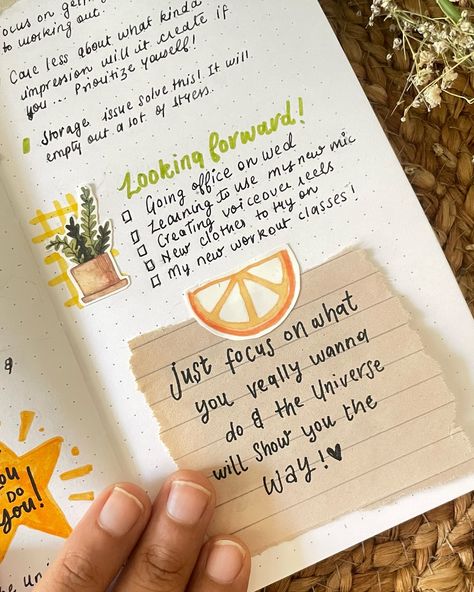 focus on
to working out.
Care less about what kinda
impression will it create if
you ... Prioritize yourself!
Storage issue solve this! It will
empty out a lot of
Looking forward!
Going office on wed
Learning to use my new mic
Creating voiceover reels
New clothes to try on
My new workout classes!
Just focus on what
you really wanna
do & the Universe
will show you the
way!
You
Do
You!